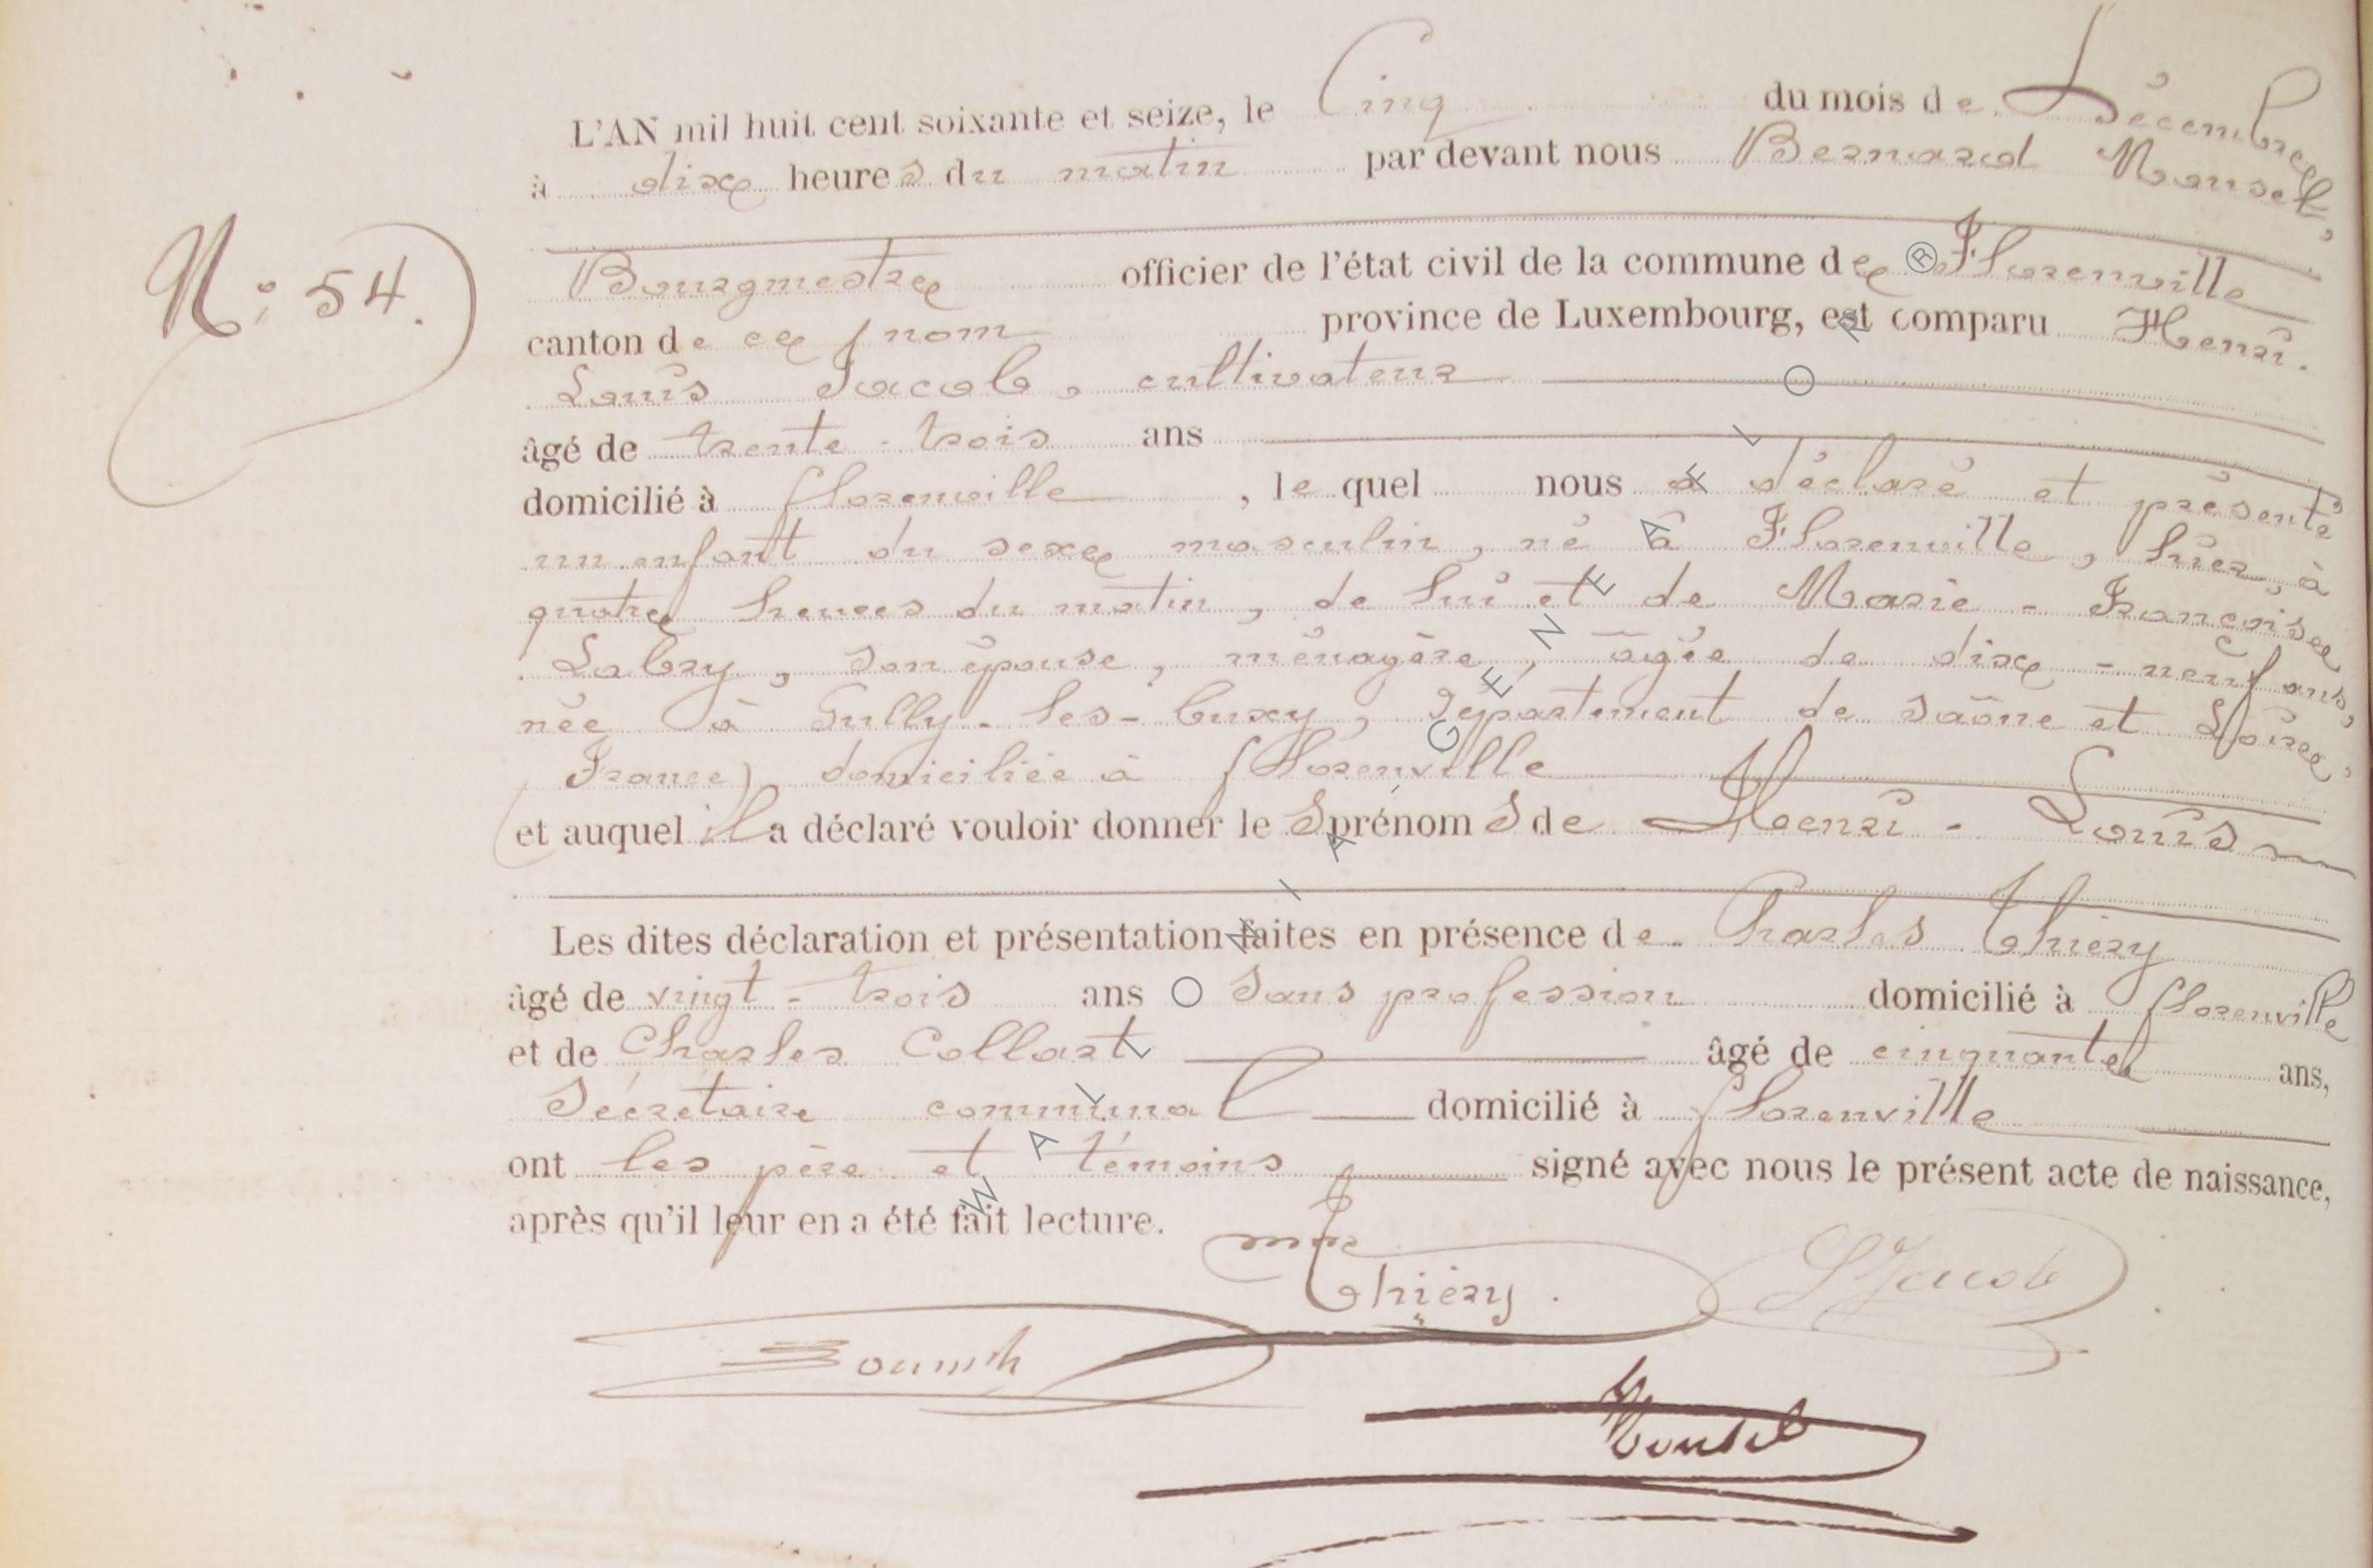 L'AN mil huit cent soixante et seize, le Cinq du mois de Décembre
à dix heures du matin par devant nous Bernard Mousel,
N° 54.
Bourgmestre officier de l'état civil de la commune de Florenville
canton de ce nom province de Luxembourg, est comparu Henri-
Louis Jacob, cultivateur
âgé de trente-trois ans
domicilié à florenville, le quel nous a déclaré et présenté
un enfant du sexe masculin, né à Florenville, hier, à
quatre heures du matin, de lui et de Marie-Françoise
Labry, son épouse, ménagère, âgée de dix-neuf ans,
née à Sully-les-buxy, département de saône et Loire,
(France) domiciliée à florenville
et auquel il a déclaré vouloir donner les prénoms de Henri-Louis
Les dites déclaration et présentation faites en présence de Charles Thiéry
âgé de vingt-trois ans sans profession domicilié à florenville
et de Charles Collart âgé de cinquante ans,
Sécrétaire communal domicilié à florenville
ont les père et témoins signé avec nous le présent acte de naissance,
après qu'il leur en a été fait lecture.
Thiéry. L Jacob
Mousel
WALLONIA GENEALOR ®